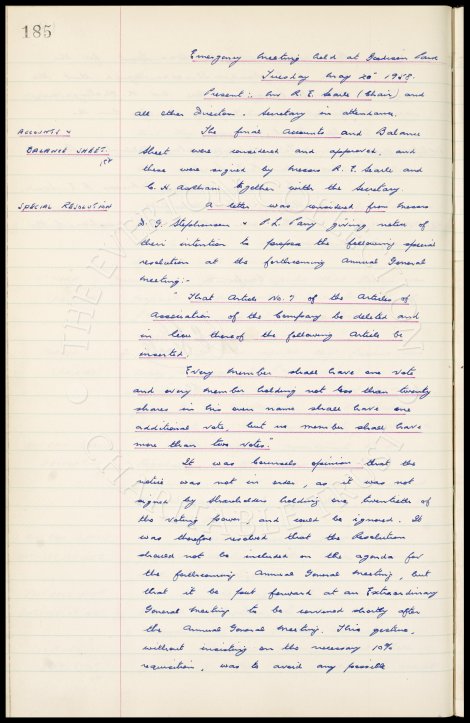 185
Emergency Meeting held at Goodison Park
Tuesday May 20th 1958
Present:- Mr R. E. Searle (Chair) and
all other Directors. Secretary in attendance.
ACCOUNTS &
BALANCE SHEET.
The final Accounts and Balance
Sheet were considered and approved, and
these were signed by Messrs R. E. Searle and
C. H. Askham together with the Secretary.
SPECIAL RESOLUTION
A letter was received from Messrs
D. G. Stephenson & P. L. Parry giving notice of
their intention to propose the following special
resolution at the forthcoming Annual General
Meeting:-
"That Article No. 7 of the Articles of
Association of the Company be deleted and
in lieu thereof the following Article be
inserted.
Every member shall have one vote
and every member holding not less than twenty
shares in his own name shall have one
additional vote, but no member shall have
more than two votes."
It was Counsels opinion that the
notice was not in order, as it was not
signed by shareholders holding one twentieth of
the voting power, and could be ignored. It
was therefore resolved that the Resolution
should not be included on the agenda for
the forthcoming Annual General Meeting, but
that it be put forward at an Extraordinary
General Meeting to be convened shortly after
the Annual General Meeting. This gesture,
without insisting on the necessary 10%
requisition, was to avoid any possible
THE EVERTON COLLECTION
CHARITABLE TRUST